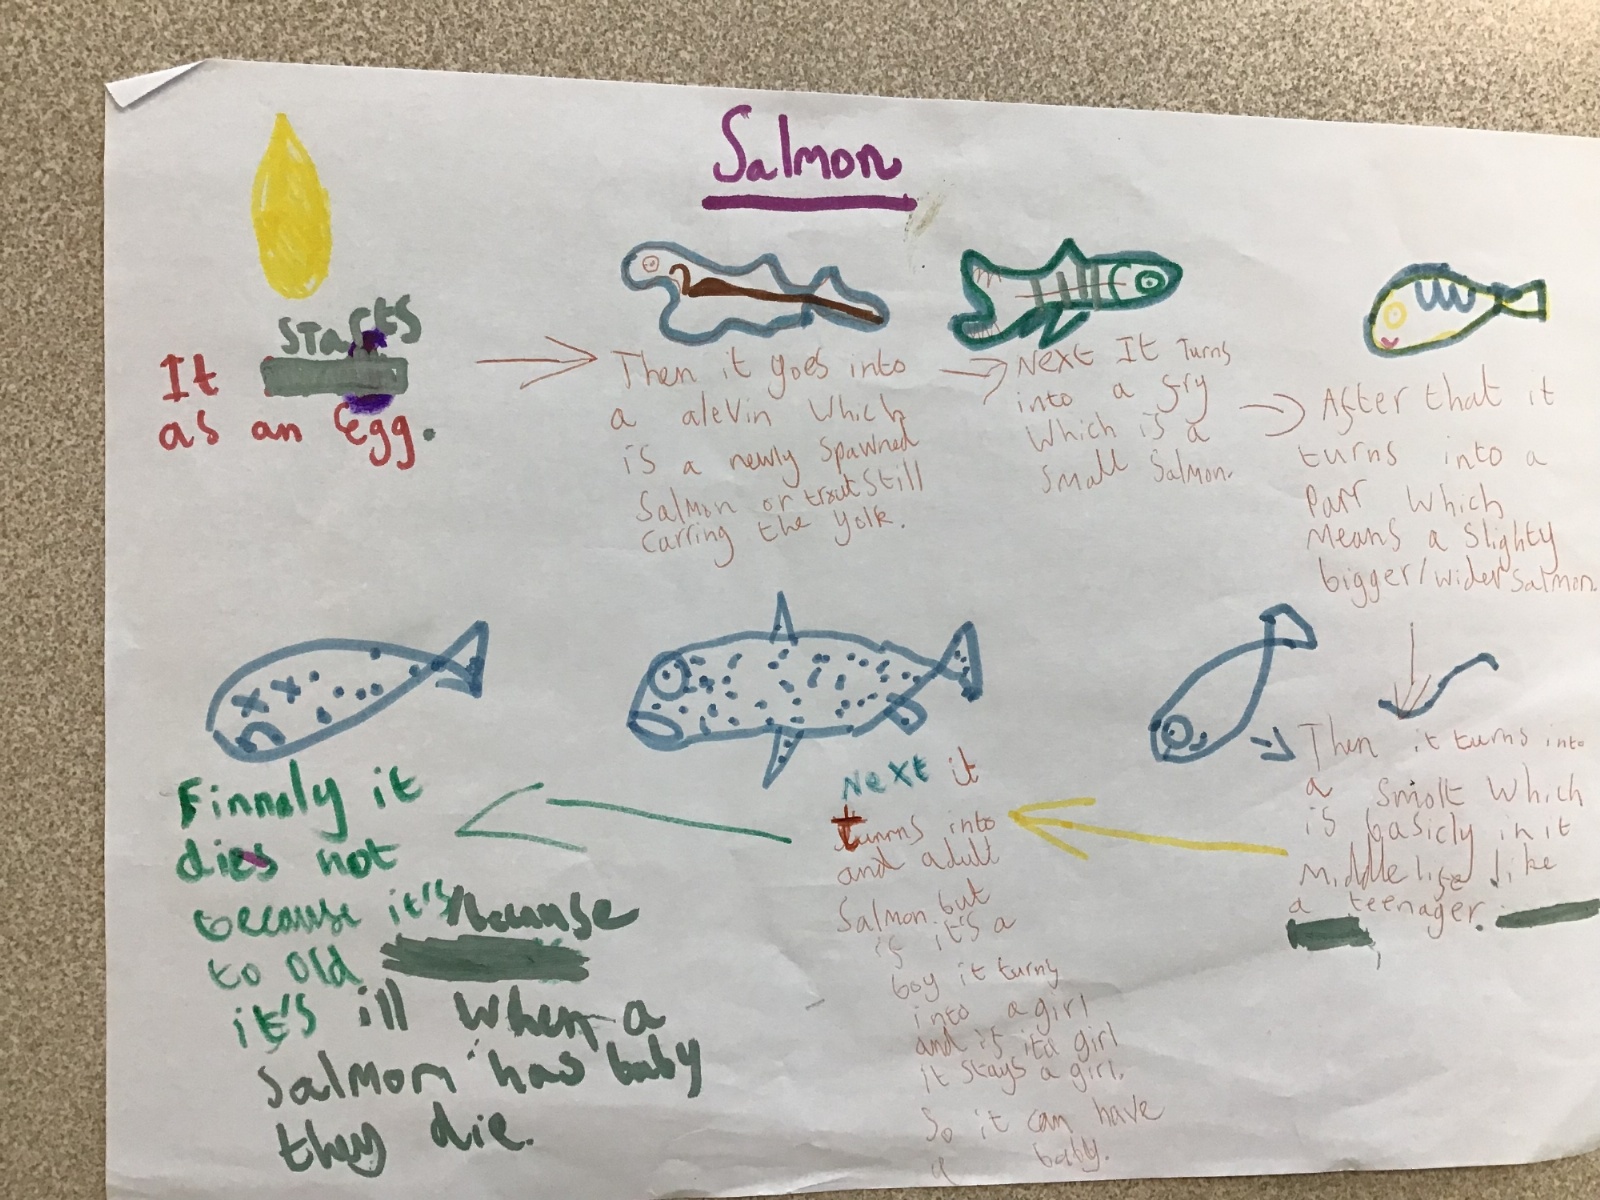 Salmon
It starts
as an Egg.
Then it goes into
a alevin which
is a newly spawned
Salmon or trout Still
Carring the yolk.
Next It Turns
into a fry
Which is a
Small Salmon.
After that it
turns into a
Parr Which
Means a Slighty
bigger/wider Salmon.
Then it turns into
a Smolt Which
is basicly in it
Middle life like
a teenager.
Next it
turns into
and adult
Salmon but
if it's a
boy it turns
into a girl
and if it a girl
it stays a girl.
So it can have
a baby.
Finnaly it
dies not
because it's
to old because
it's ill when a
Salmon has baby
they die.